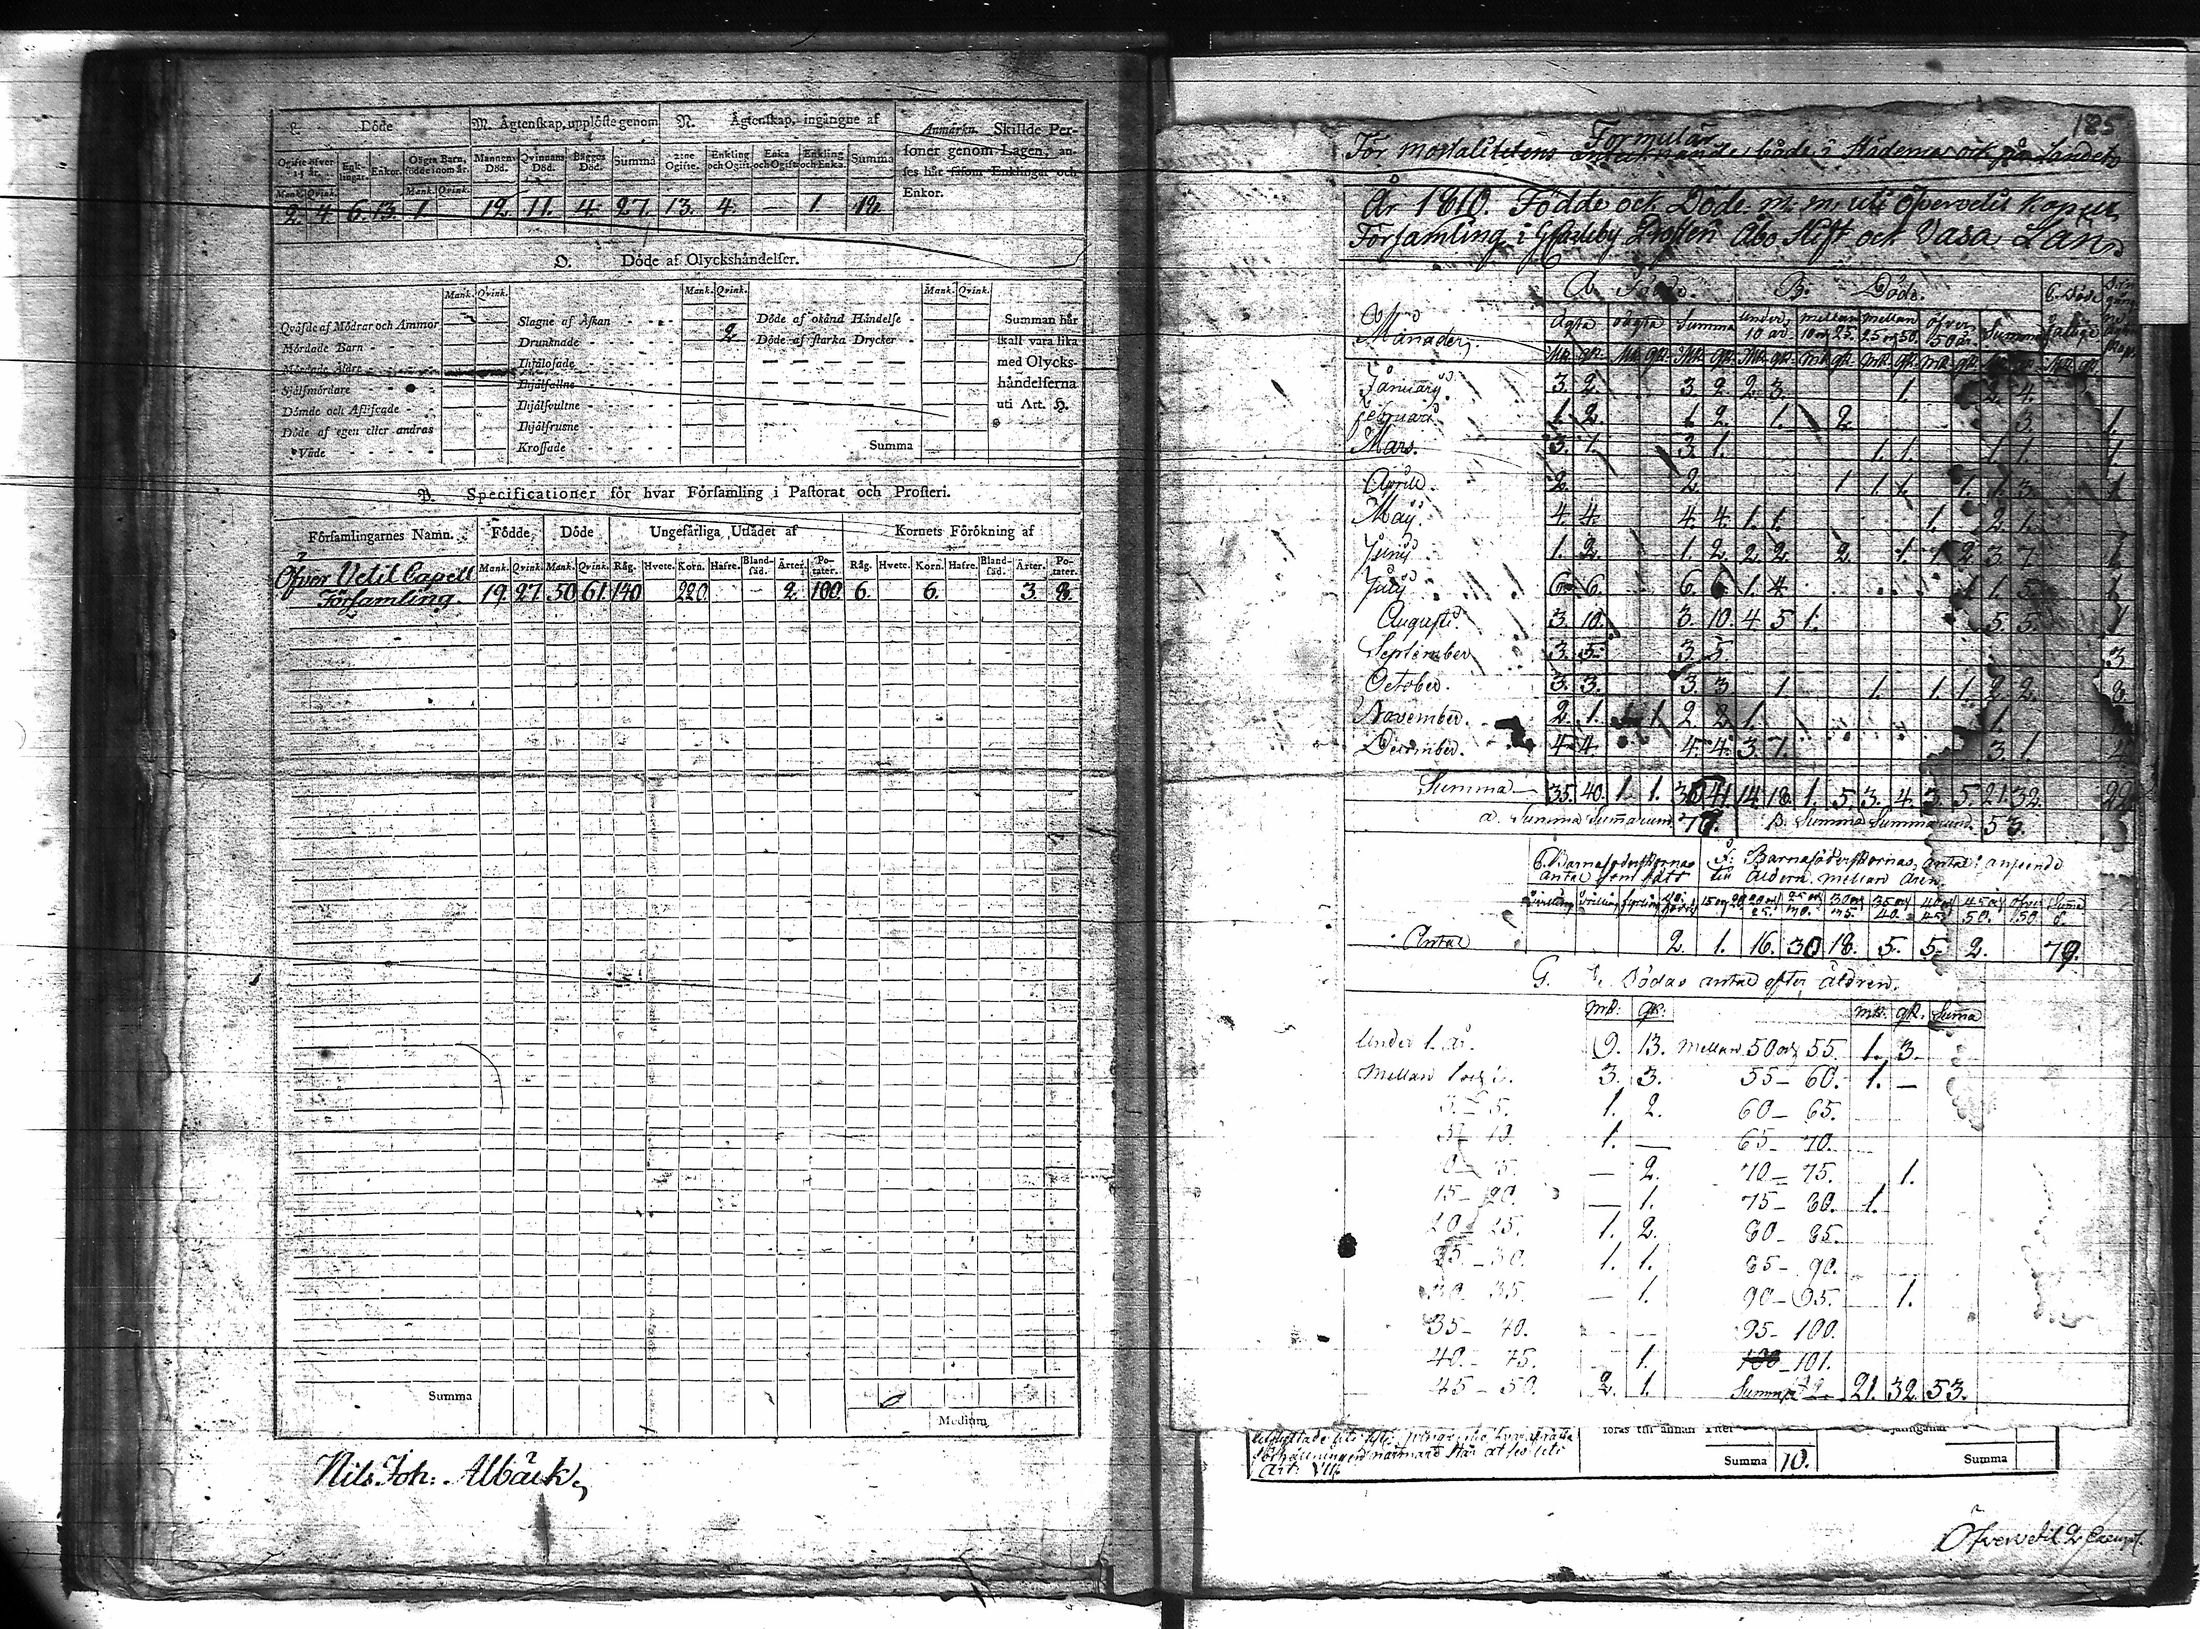 L. Döde M. Ägtenskap, upplöste genom N. Ägtenskap, ingångne af Anmärkn. Skillde Per-
soner genom Lagen, an-
ses här såsom Enklingar och
Enkor.
Ogifte öfver 15 år. Enklingar. Enkor. Oägta Barn, födde inom år. Mannens Död. Qvinnans Död. Bägges Död. Summa 2:ne Ogifte. Enkling och Ogift. Enka och Ogift. Enkling och Enka. Summa
Mank. Qvink. Mank. Qvink.
2. 4. 6. 13. 1. 12. 11. 4. 27. 13. 4. — 1.
O. Döde af Olyckshändelser.
Mank. Qvink. Mank. Qvink. Mank. Qvink.
Qväfde af Mödrar och Ammor Slagne af Åskan Döde af okänd Händelse Summan här
Mördade Barn Drunknade 2 Döde af starka Drycker skall vara lika
Mördade äldre Ihjälfrosne med Olycks-
Sjelfmördare Ihjälfallne händelserna
Dömde och Aflifvade Ihjälsvultne uti Art. H.
Döde af egen eller andras Ihjälfrusne
Våde Krossade Summa
P. Specificationer för hvar Församling i Pastorat och Prosteri.
Församlingarnes Namn. Födde Döde Ungefärliga Utsädet af Kornets Förökning af
Mank. Qvink. Mank. Qvink. Råg. Hvete. Korn. Hafre. Blandsäd. Ärter. Potater. Råg. Hvete. Korn. Hafre. Blandsäd. Ärter. Potater.
Öfver Vetil Capell
Församling 19. 27. 50 61. 140 220. — 2. 100. 6. 6. 3. 8.
Summa
Medium
Nils Joh: Albäck
185
Formulär
För mortalitetens antecknande, både i Städerna och på Landet
År 1810. Födde och Döde m. m. uti Öfvervetil Kapell
Församling i Gkarleby Prosteri Åbo Stift och Vasa Län
A. Födde. B. Döde.
Månader. Ägta oägta Summa under 10 år mellan 10 och 25. mellan 25 och 50. öfver 50 år. Summa
Januarij 3. 2. 3. 2. 2. 3. 1. 2. 4.
Februarii 1. 2. 1. 2. 1. 2. 3. 1.
Mars. 3. 1. 3. 1. 1. 1. 1. 1. 1.
Aprill. 2. 2. 1 1. 1. 1. 1. 3. 1
Maij. 4. 4. 4. 4. 1. 1. 1. 2. 1.
Junij 1. 2. 1. 2. 2. 2. 2. 1. 1 2. 3. 7. 1.
Julij 6. 6. 6. 6 1. 4. 1 1. 5. 1
Augusti 3. 10. 3. 10. 4. 5 1. 5. 5. 1
September 3. 5. 3. 5. 3
October. 3. 3. 3. 3 1 1. 1. 1. 2. 2. 8
November. 2. 1. 1. 2. 2. 1. 1.
December. 4. 4. 4. 4. 3. 1. 3. 1. 2
Summa 35. 40. 1. 1. 36 41. 14. 18. 1. 5. 3. 4. 3. 5. 21. 32. 22
a. Summa Summarum 77. B. Summa Summarum. 53.
E. Barnaföderskornas antal som födt F. Barnaföderskornas antal i anseende till åldern mellan åren.
Antal 2. 1. 16. 30 18. 5. 5. 2. 79.
G. Dödas antal efter åldren.
mk: qk: mk: qk. Summa
Under 1. år. 9. 13. Mellan 50 och 55. 1. 3.
Mellan 1 och 3. 3. 55 – 60. 1. —
1. 2. 60 – 65.
1. — 65 – 70.
— 2. 70 – 75. 1.
15 – 20. — 1. 75 – 80. 1.
20 – 25. 1. 2. 80 – 85.
25 – 30. 1. 1. 85 – 90.
30 35. — 1. 90 – 95. 1.
35 – 40. 95 – 100.
40 – 45. 1. 100 – 101.
45 – 50. 2. 1. Summa 21. 32. 53.
föras till annan Titel
Summa 10. Summa
Art: VIII.
Öfvervetil 2. Exempl.